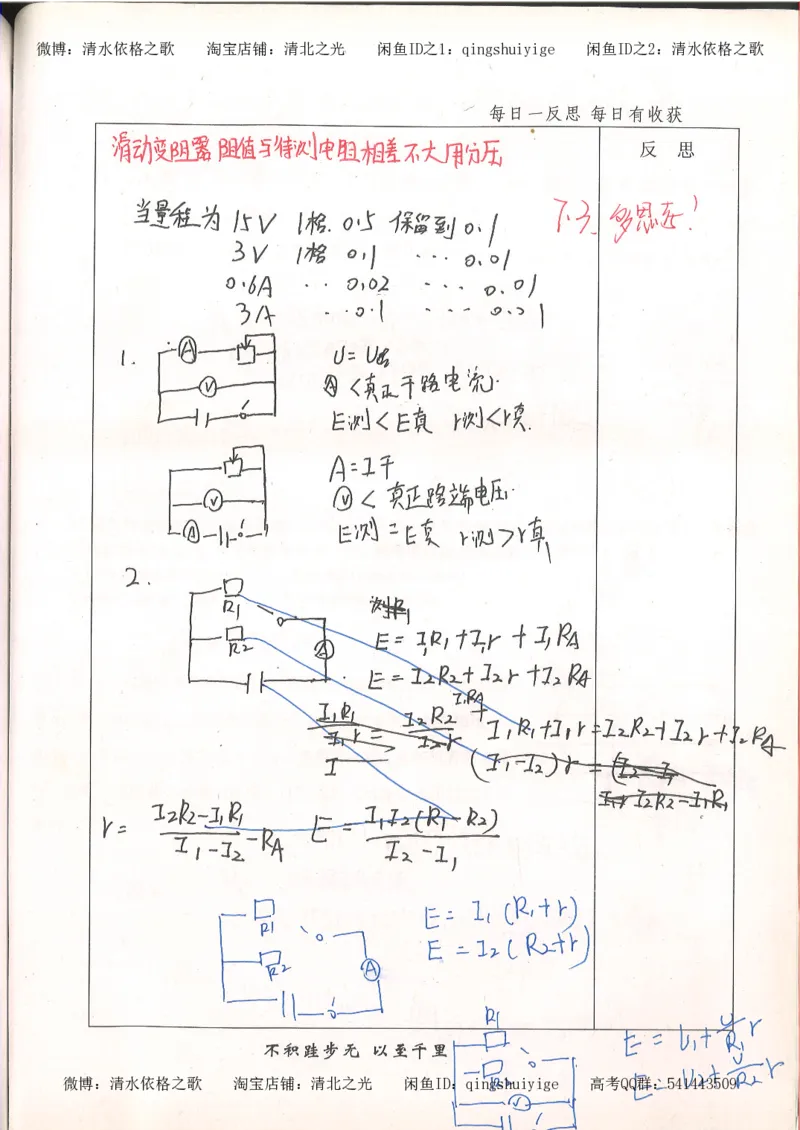 微博：清水依格之歌 淘宝店铺：清北之光 闲鱼ID之1：qingshuiyige 闲鱼ID之2：清水依格之歌
每日一反思 每日有收获
滑动变阻器 阻值与待测电阻相差不大用分压
反 思
当量程为 15V 1格. 0.5 保留到 0.1
3V 1格 0.1 ... 0.01
0.6A .. 0.02 ... 0.01
3A ..0.1 ... 0.01
7.3. 多思远！
1.
A
V
U=U路
A<真正干路电流.
E测<E真 r测<r真.
V
A
A=I干
V< 真正路端电压.
E测=E真 r测>r真
2.
R1
R2
A
测R1
E= I1R1+I1r+I1RA
E=I2R2+I2r+I2RA
I1R1/I1r = I2R2/I2r
I
I1RA + I1R1+I1r=I2R2+I2r+I2RA
(I1-I2)r = (I2-I1
I1r I2R2-I1R1
r= (I2R2-I1R1)/(I1-I2) -RA E= I1I2(R1-R2)/(I2-I1)
R1
R2
A
E= I1(R1+r)
E=I2(R2+r)
不积跬步无 以至千里
R1
R2
V
E=U1+U/R1 r
E=U2+U/R2 r
微博：清水依格之歌 淘宝店铺：清北之光 闲鱼ID：qingshuiyige 高考QQ群：541443509